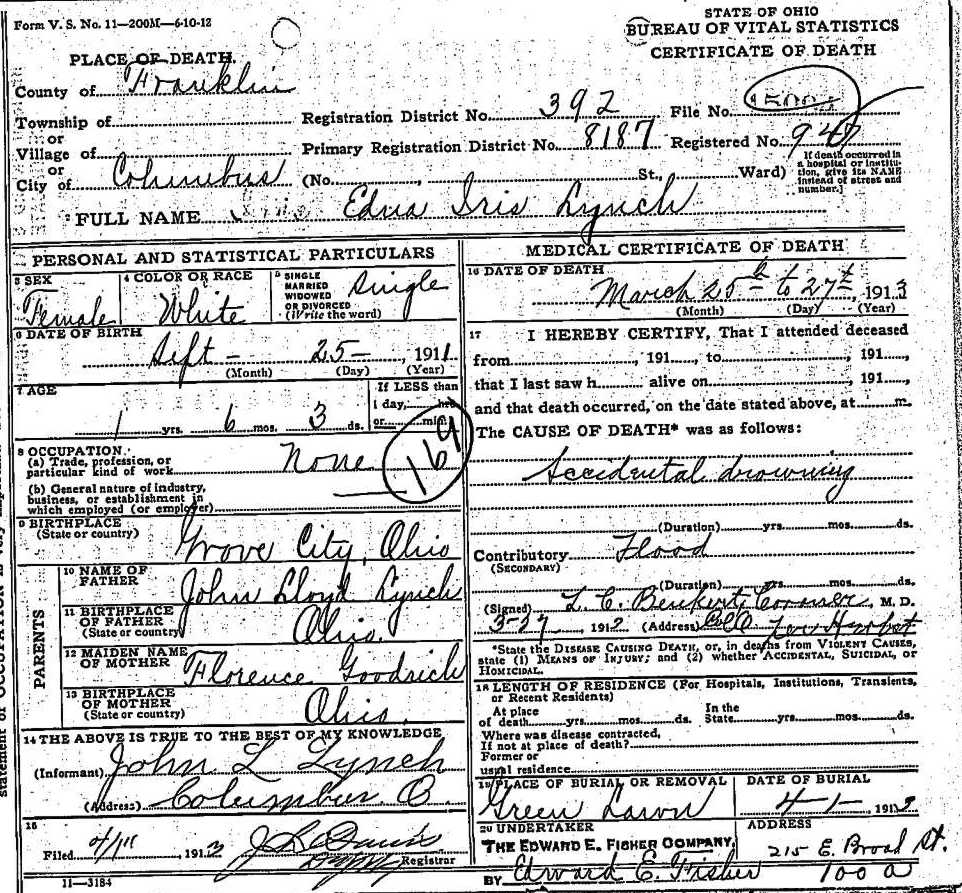 Form V. S. No. 11—200M—6-10-12
STATE OF OHIO
BUREAU OF VITAL STATISTICS
CERTIFICATE OF DEATH
PLACE OF DEATH.
County of Franklin
Township of
or
Village of
or
City of Columbus
Registration District No. 392
File No.
Primary Registration District No. 8187
Registered No. 947
(No. , St., Ward)
If death occurred in
a hospital or institu-
tion, give its NAME
instead of street and
number.]
2 FULL NAME Edna Iris Lynch
PERSONAL AND STATISTICAL PARTICULARS
3 SEX
Female
4 COLOR OR RACE
White
5 SINGLE
MARRIED
WIDOWED
OR DIVORCED
(Write the word)
Single
6 DATE OF BIRTH
Sept - 25 - , 1911
(Month) (Day) (Year)
7 AGE
1 yrs. 6 mos. 3 ds.
If LESS than
1 day, hrs.
or min.
164
8 OCCUPATION.
(a) Trade, profession, or
particular kind of work None
(b) General nature of industry,
business, or establishment in
which employed (or employer)
9 BIRTHPLACE
(State or country)
Grove City, Ohio
PARENTS
10 NAME OF
FATHER
John Lloyd Lynch
11 BIRTHPLACE
OF FATHER
(State or country)
Ohio.
12 MAIDEN NAME
OF MOTHER
Florence Goodrich
13 BIRTHPLACE
OF MOTHER
(State or country)
Ohio.
14 THE ABOVE IS TRUE TO THE BEST OF MY KNOWLEDGE
(Informant) John L Lynch
(Address) Columbus. O.
15
Filed 4/1 191
Registrar
11—3184
MEDICAL CERTIFICATE OF DEATH
16 DATE OF DEATH
March 25th to 27th, 1913
(Month) (Day) (Year)
17 I HEREBY CERTIFY, That I attended deceased
from , 191 , to , 191 ,
that I last saw h alive on , 191 ,
and that death occurred, on the date stated above, at m.
The CAUSE OF DEATH* was as follows:
Accidental drowning
(Duration) yrs. mos. ds.
Contributory Flood
(SECONDARY)
(Duration) yrs. mos. ds.
(Signed) L. C. Beukert, Coroner, M. D.
3-27, 191 (Address)
*State the DISEASE CAUSING DEATH, or, in deaths from VIOLENT CAUSES,
state (1) MEANS OF INJURY; and (2) whether ACCIDENTAL, SUICIDAL, or
HOMICIDAL.
18 LENGTH OF RESIDENCE (For Hospitals, Institutions, Transients,
or Recent Residents)
At place
of death yrs. mos. ds.
In the
State yrs. mos. ds.
Where was disease contracted,
If not at place of death?
Former or
usual residence
19 PLACE OF BURIAL OR REMOVAL
Green Lawn
DATE OF BURIAL
4-1- 1913
20 UNDERTAKER
THE EDWARD E. FISHER COMPANY,
BY Edward E. Fisher
ADDRESS
215 E. Broad St.
700 a